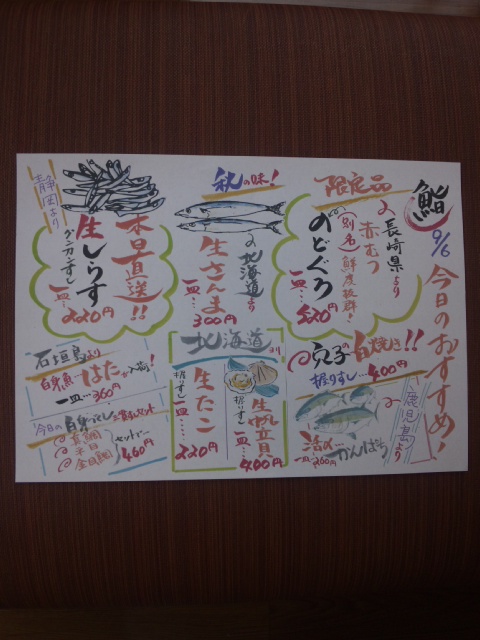 鮨
9/6 今日のおすすめ!
限定品
長崎県より
赤むつ
(別名)鮮度抜群!
のどぐろ
一皿…520円
秋の味!
北海道より
生さんま
一皿…300円
静岡より
本日直送!!
生しらす
グンカンずし
一皿…220円
穴子の白焼き!!
握りずし…400円
鹿児島より
活〆…かんぱち
一皿
北海道より
生帆立貝
握りずし
一皿…400円
生たこ
握りずし
一皿…220円
石垣島より
白身魚…はた入荷!
一皿…360円
今日の白身づくし三貫セット
真鯛
平目
金目鯛
セットで…
460円